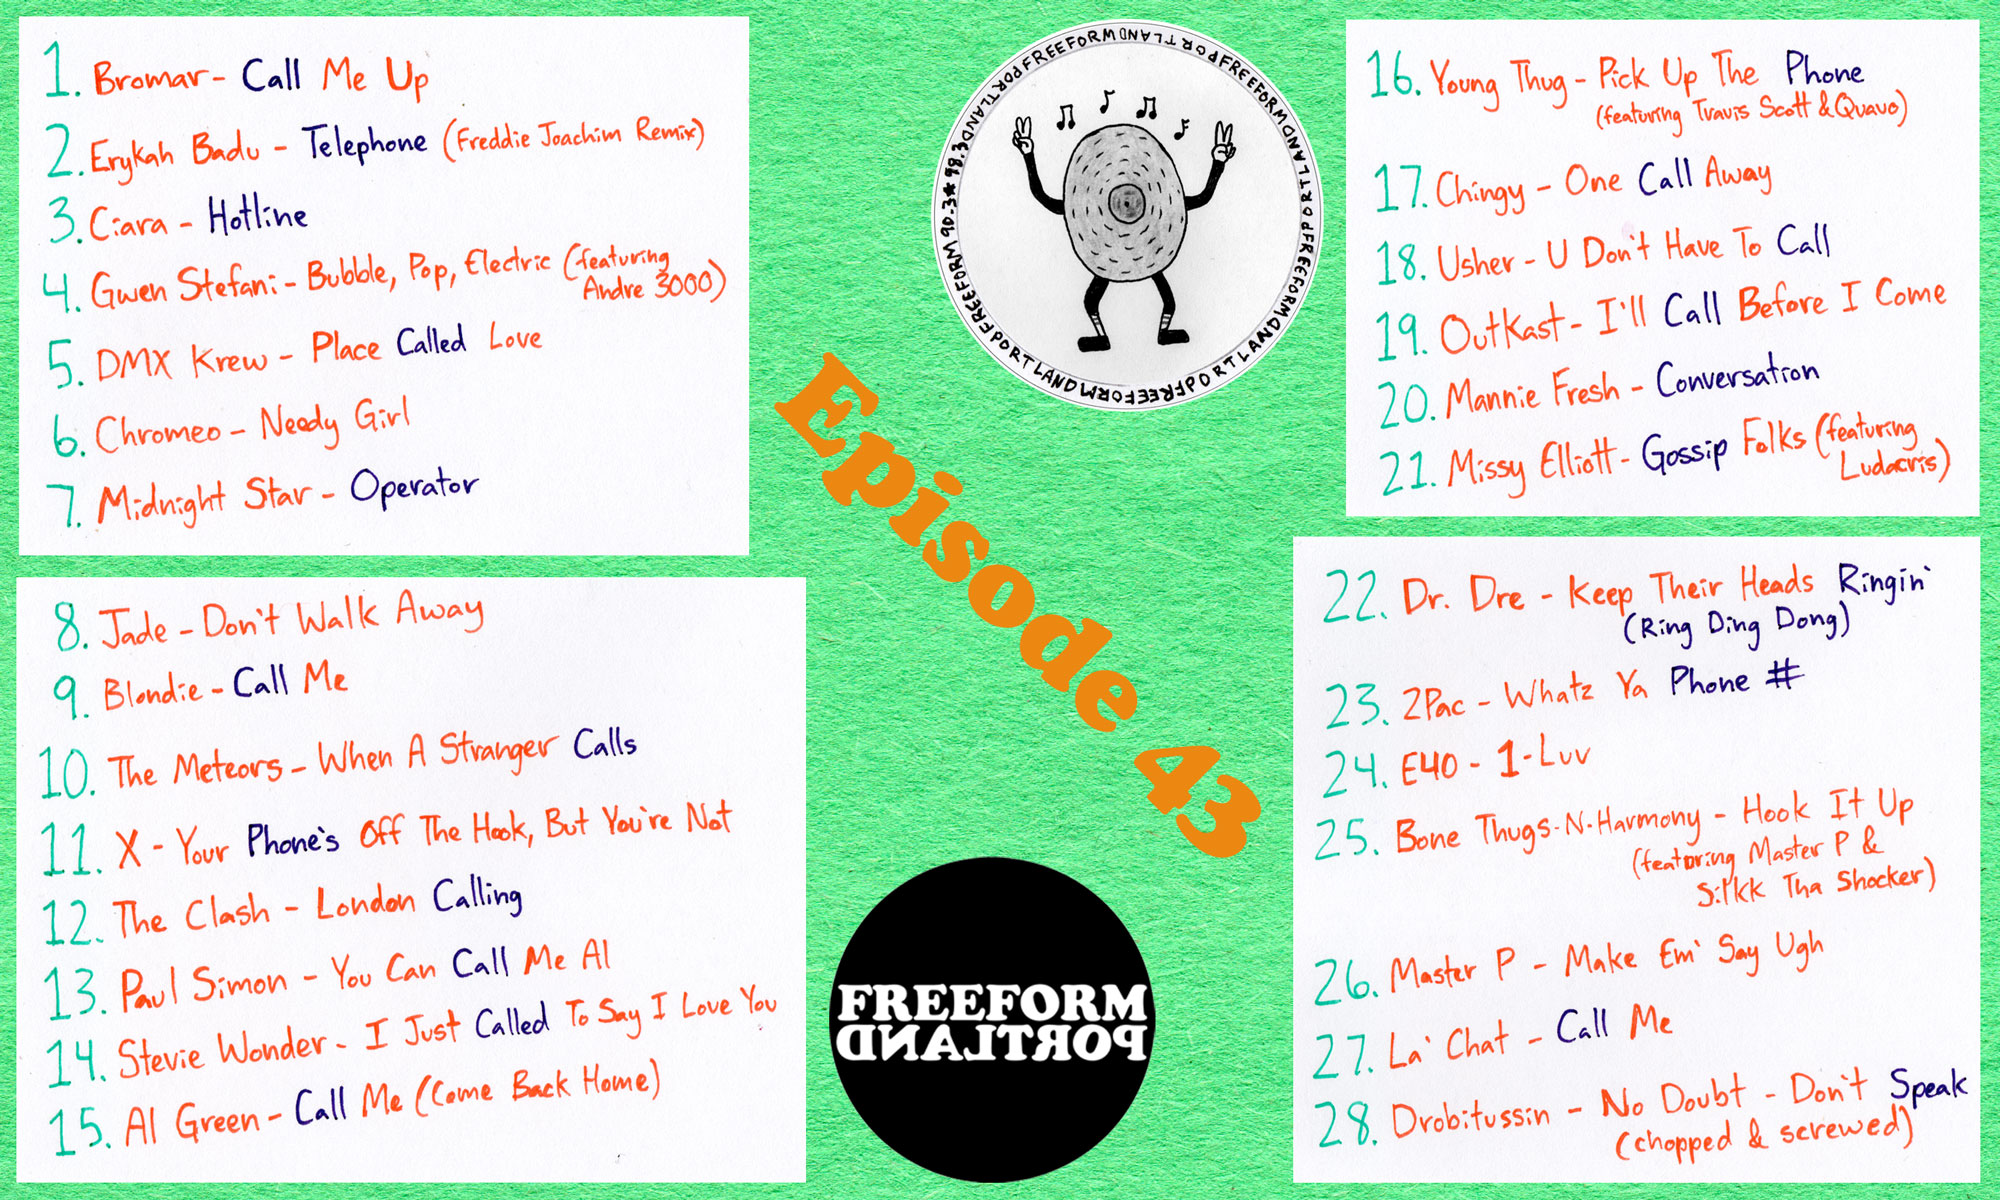 1. Bromar - Call Me Up
2. Erykah Badu - Telephone (Freddie Joachim Remix)
3. Ciara - Hotline
4. Gwen Stefani - Bubble, Pop, Electric (featuring
Andre 3000)
5. DMX Krew - Place Called Love
6. Chromeo - Needy Girl
7. Midnight Star - Operator
8. Jade - Don't Walk Away
9. Blondie - Call Me
10. The Meteors - When A Stranger Calls
11. X - Your Phone's Off The Hook, But You're Not
12. The Clash - London Calling
13. Paul Simon - You Can Call Me Al
14. Stevie Wonder - I Just Called To Say I Love You
15. Al Green - Call Me (Come Back Home)
FREEFORM PORTLAND FREEFORM PORTLAND FREEFORM PORTLAND FREEFORM PORTLAND FREEFORM 90.3 * 98.3 PORTLAND
Episode 43
FREEFORM
PORTLAND
16. Young Thug - Pick Up The Phone
(featuring Travis Scott & Quavo)
17. Chingy - One Call Away
18. Usher - U Don't Have To Call
19. OutKast - I'll Call Before I Come
20. Mannie Fresh - Conversation
21. Missy Elliott - Gossip Folks (featuring
Ludacris)
22. Dr. Dre - Keep Their Heads Ringin'
(Ring Ding Dong)
23. 2Pac - Whatz Ya Phone #
24. E40 - 1-Luv
25. Bone Thugs-N-Harmony - Hook It Up
(featuring Master P &
Silkk Tha Shocker)
26. Master P - Make Em' Say Ugh
27. La' Chat - Call Me
28. Drobitussin - No Doubt - Don't Speak
(chopped & screwed)